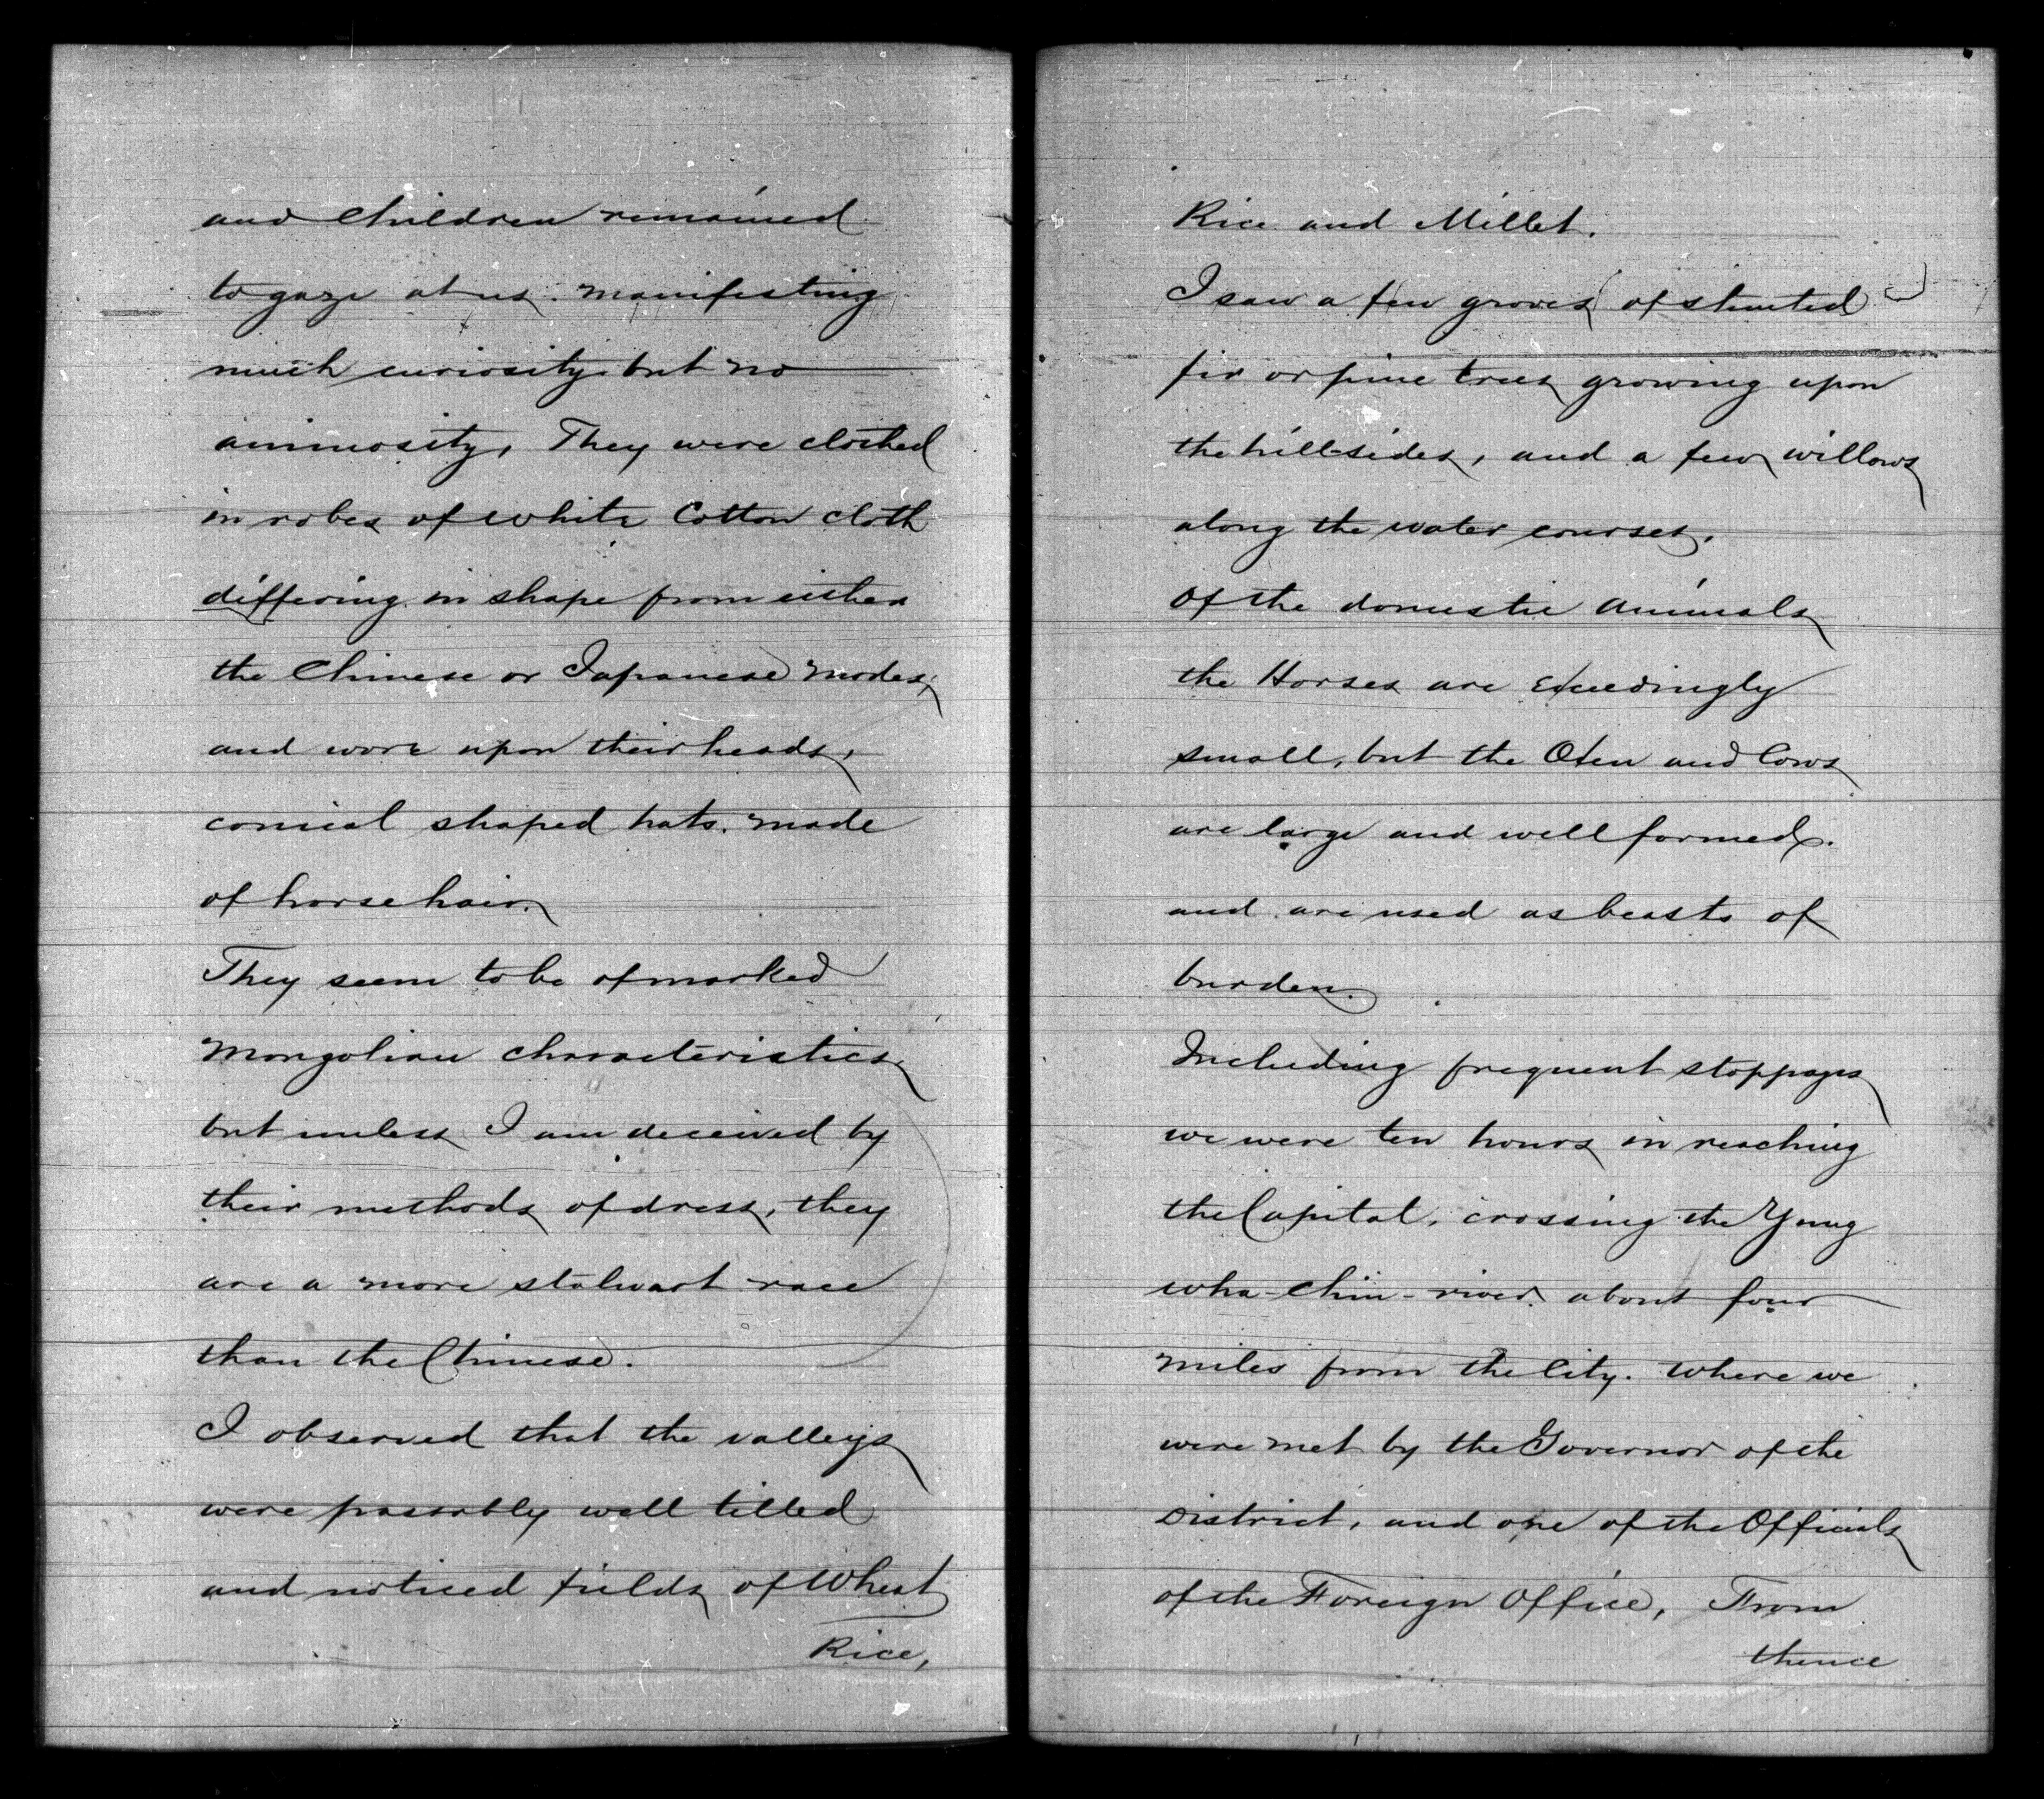 and Children remained
to gaze at us. manifesting
much curiosity but no
animosity, They were clothed
in robes of white Cotton cloth
differing in shape from either
the Chinese or Japanese modes,
and wore upon their heads,
conical shaped hats. made
of horse hair.
They seem to be of marked
Mongolian characteristics
but unless I am deceived by
their methods of dress, they
are a more stalwart race
than the Chinese.
I observed that the valleys
were passably well tilled
and noticed fields of Wheat
Rice,
Rice and Millet.
I saw a few groves of stunted
fir or pine trees growing upon
the hill-sides, and a few willows
along the water courses.
Of the domestic animals
the Horses are exceedingly
small, but the Oxen and Cows
are large and well formed.
and are used as beasts of
burden.
Including frequent stoppages
we were ten hours in reaching
the Capital, crossing the Yung
wha-Chin-river about four
miles from the City. Where we
were met by the Governor of the
District, and one of the Officials
of the Foreign Office, From
thence